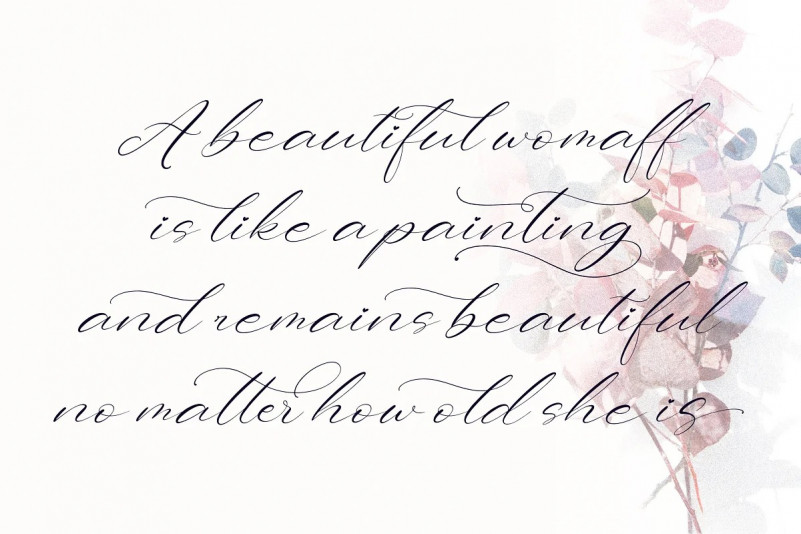 A beautiful womaff
is like a painting
and remains beautiful
no matter how old she is